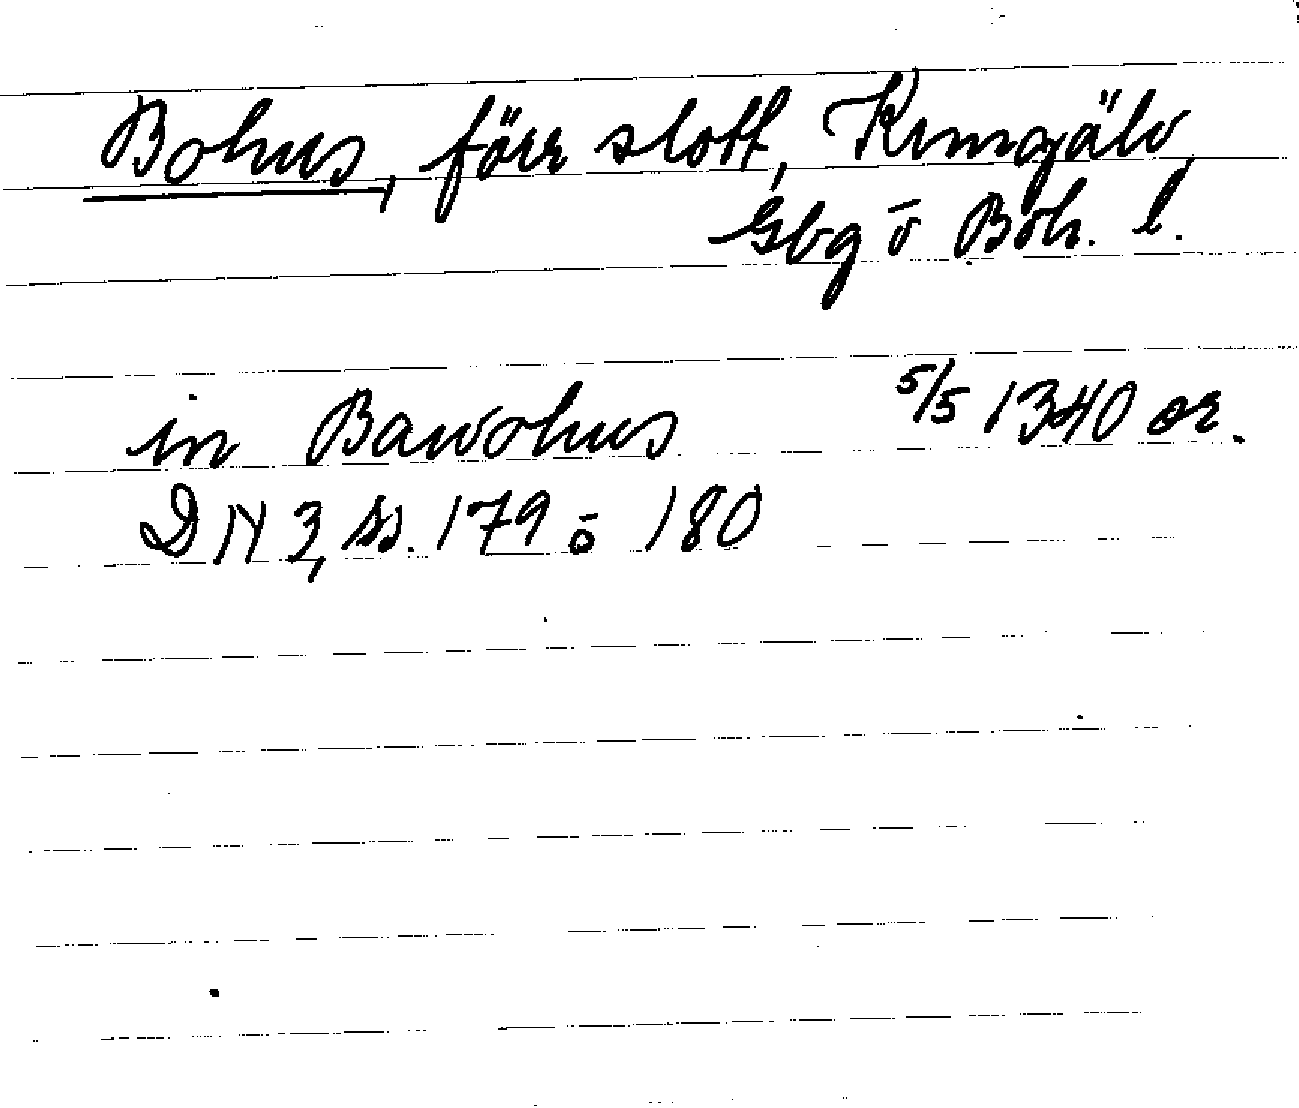 Bohus, förr slott, Kungälv,
Gbg ō Boh. l.
in Bawohus 5/5 1340 or.
DN 3, ss. 179 ō 180